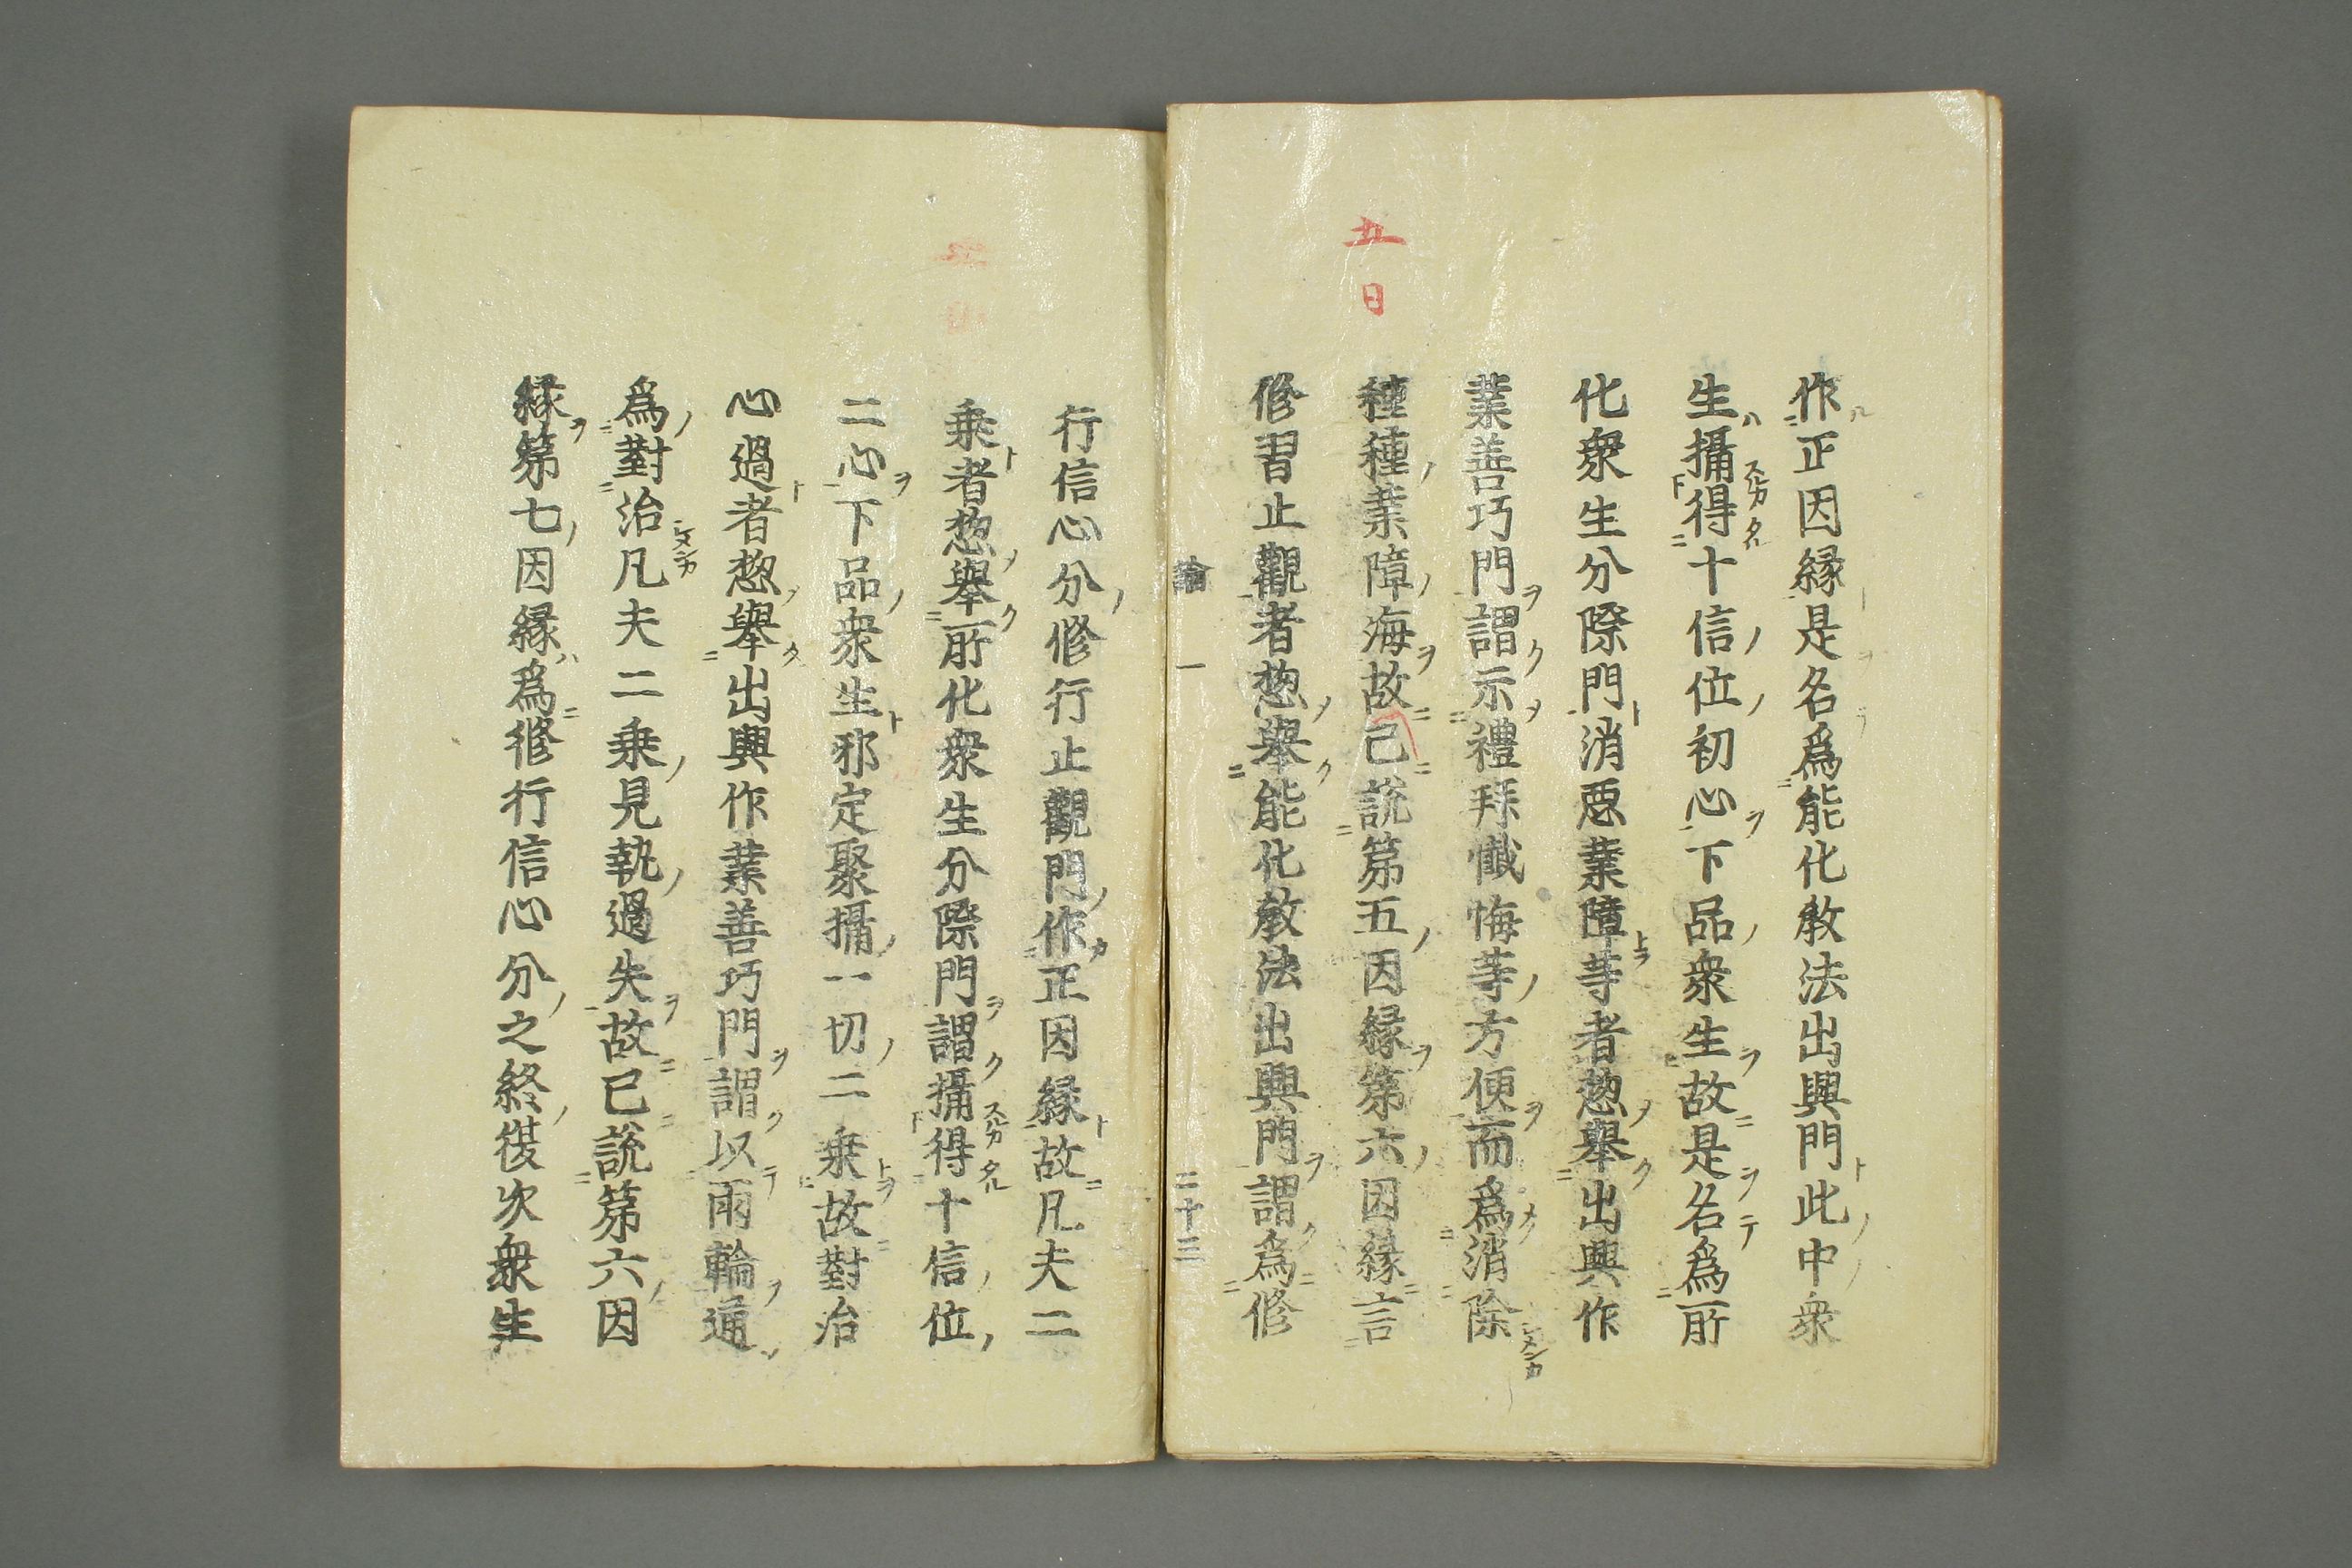 五日
作正因縁是名爲能化教法出興門此中衆
生攝得十信位初心下品衆生故是名爲所
化衆生分際門消惡業障等者惣舉出興作
業善巧門謂示禮拜懺悔等方便而爲消除
種種業障海故已說第五因縁第六因縁言
修習止觀者惣舉能化教法出興門謂爲修
論 一 二十三
行信心分修行止觀門作正因縁故凡夫二
乗者惣舉所化衆生分際門謂攝得十信位
二心下品衆生邪定聚攝一切二乗故對治
心過者惣舉出興作業善巧門謂以兩輪通
爲對治凡夫二乗見執過失故已說第六因
縁第七因縁爲修行信心分之終復次衆生